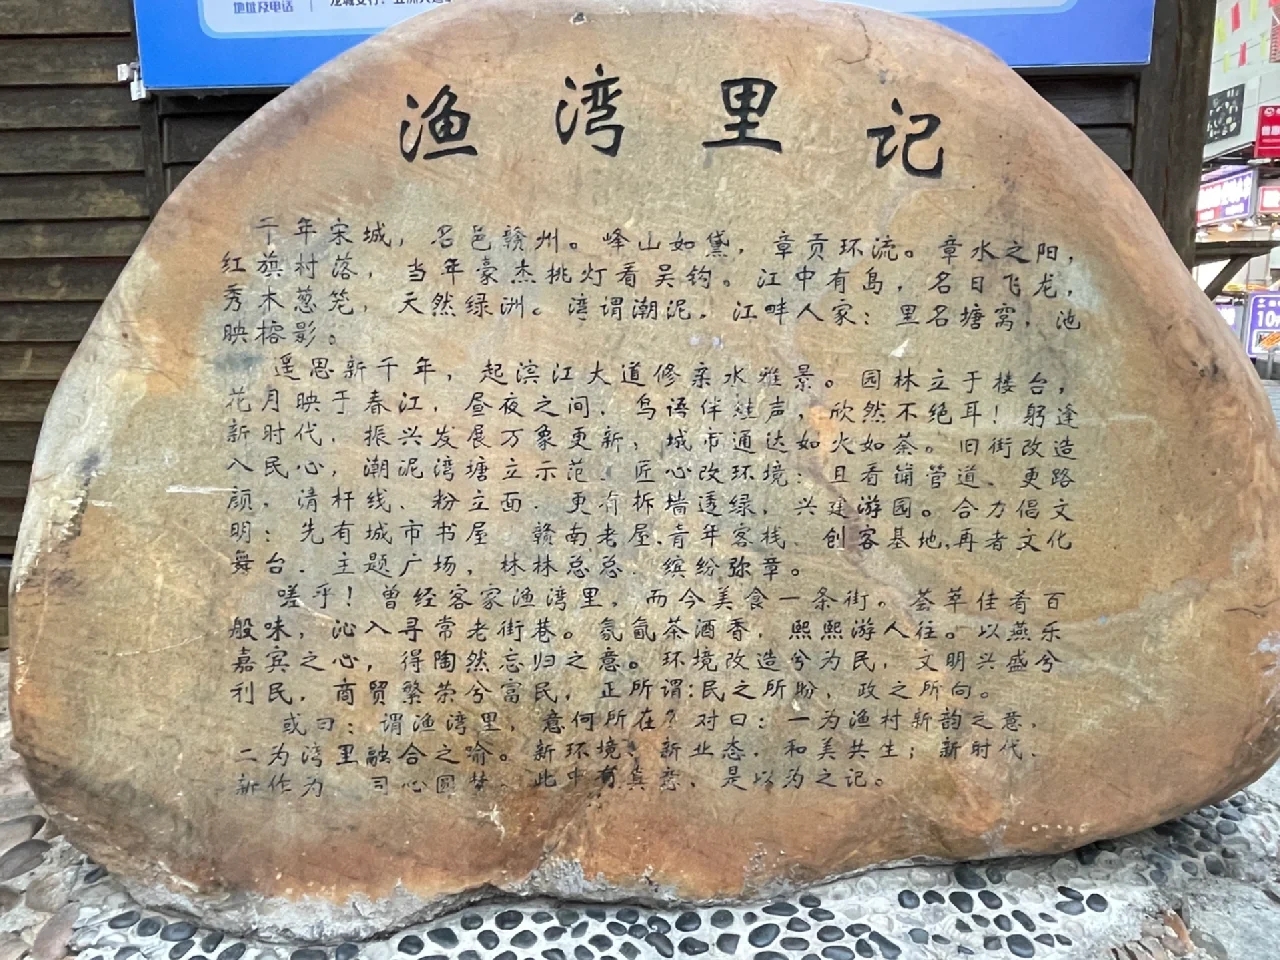 地址及电话
渔湾里记
千年宋城，名邑赣州。峰山如黛，章贡环流。章水之阳，
红旗村落，当年豪杰挑灯看吴钩。江中有岛，名曰飞龙，
秀木葱茏，天然绿洲。湾谓潮泥，江畔人家；里名塘窝，池
映榕影。
遥思新千年，起滨江大道修亲水雅景。园林立于楼台，
花月映于春江，昼夜之间，鸟语伴蛙声，欣然不绝耳！躬逢
新时代，振兴发展万象更新；城市通达如火如荼。旧街改造
入民心，潮泥湾塘立示范。匠心改环境：且看铺管道、更路
颜，清杆线、粉立面，更有拆墙透绿，兴建游园。合力倡文
明：先有城市书屋 赣南老屋、青年客栈、创客基地，再者文化
舞台、主题广场，林林总总，缤纷弥章。
嗟乎！曾经客家渔湾里，而今美食一条街。荟萃佳肴百
般味，沁入寻常老街巷。氛氤茶酒香，熙熙游人往。以燕乐
嘉宾之心，得陶然忘归之意。环境改造兮为民，文明兴盛兮
利民，商贸繁荣兮富民，正所谓：民之所盼，政之所向。
或曰：谓渔湾里，意何所在？对曰：一为渔村新韵之意，
二为湾里融合之喻。新环境、新业态，和美共生；新时代、
新作为 心圆梦，此中有真意，是以为之记。